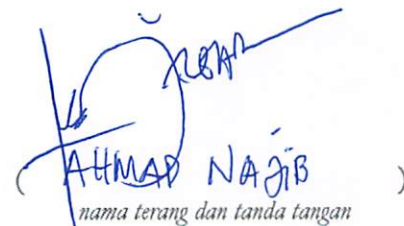 ( AHMAD NAJIB )
nama terang dan tanda tangan